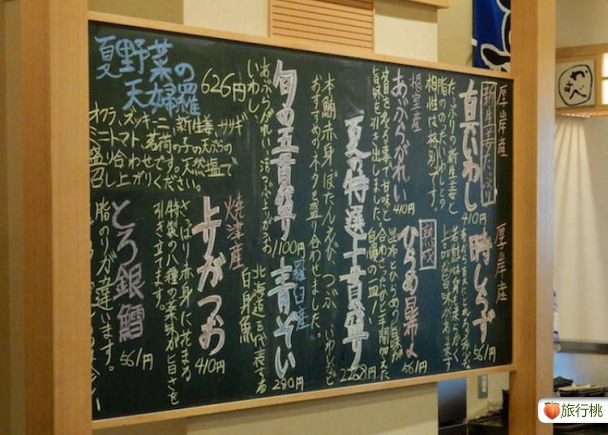 厚岸産
新生姜たっぷり
真いわし
たっぷりの新生姜と
脂ののったいわしとの
相性は格別です。
410円
厚岸産
時しらず
561円
根室産
あぶらがれい
旨味を引き出しました。
410円
熟成
ひらめ昆布〆
昆布とひらめの旨味が
自慢の一皿!
561円
夏の特選十貫盛り
本鮪赤身、ぼたん老び、つぶ、いわしなど
おすすめのネタを盛り合わせました。
旬の五貫盛り
いわし
1100円
羅臼産
青ぞい
北海道を代表する
白身魚
280円
夏野菜の
天婦羅
626円
オクラ、ズッキーニ、新生姜、ササギ
ミニトマト、茗荷の子の天ぷらの
盛り合わせです。天然塩で
召し上がりください。
焼津産
上りがつお
さっぱり赤身に花まる
特製の八種の薬味が旨さを
引き立てます。
410円
とろ銀鱈
脂のりが違います。
561円
旅行桃